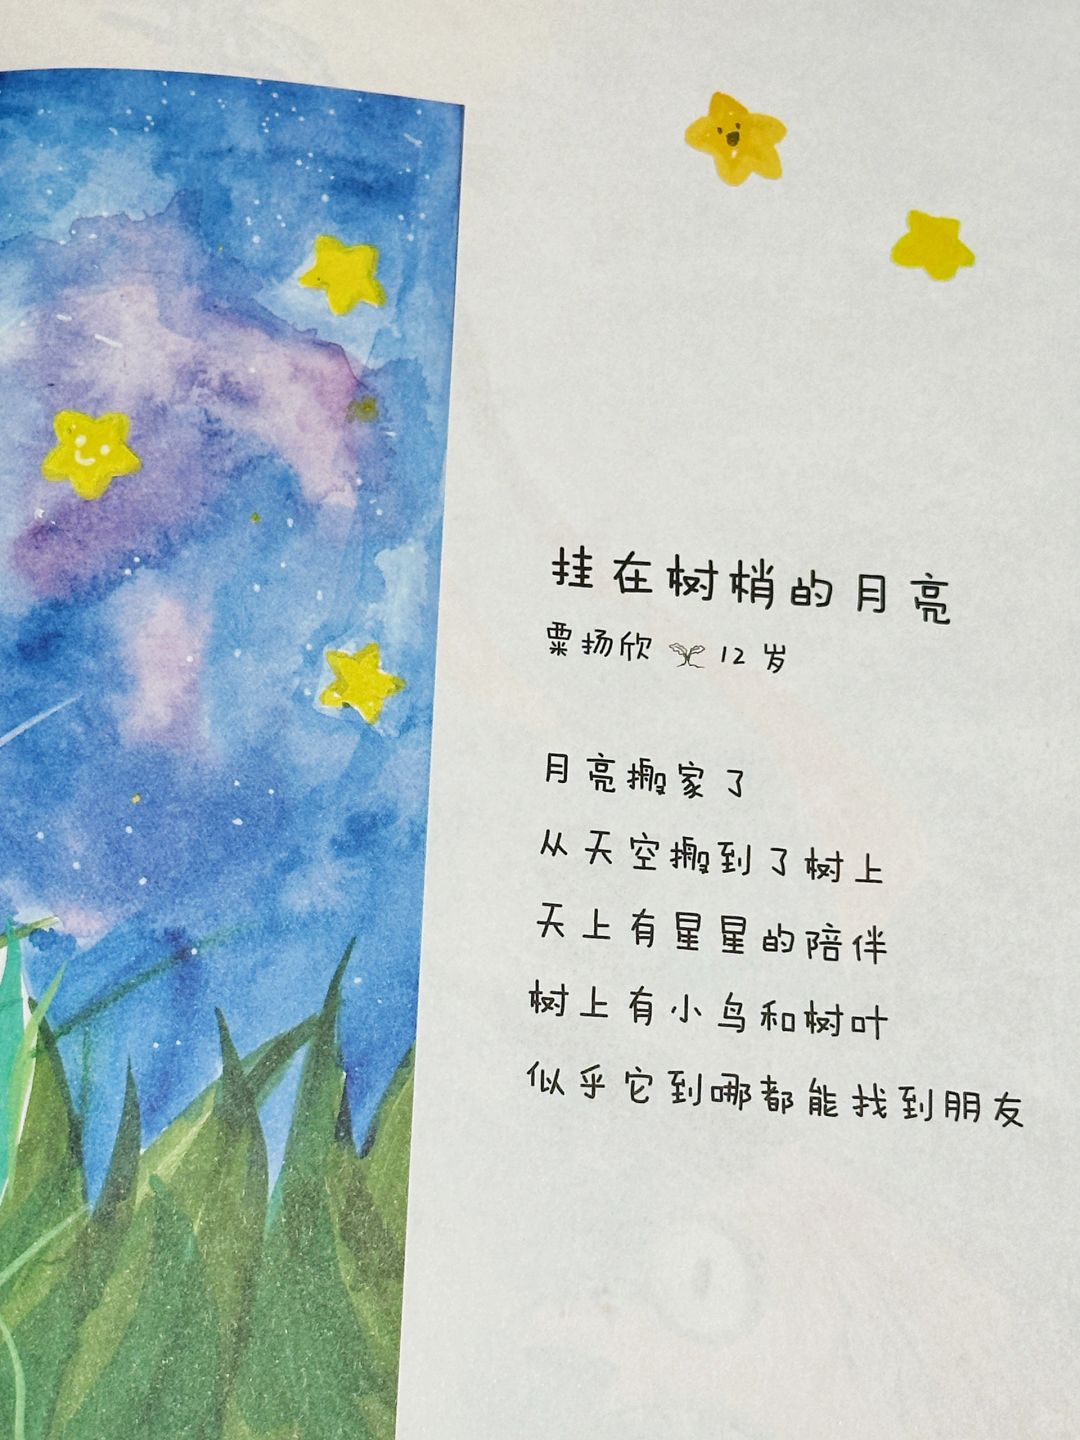 挂在树梢的月亮
粟扬欣 12岁
月亮搬家了
从天空搬到了树上
天上有星星的陪伴
树上有小鸟和树叶
似乎它到哪都能找到朋友